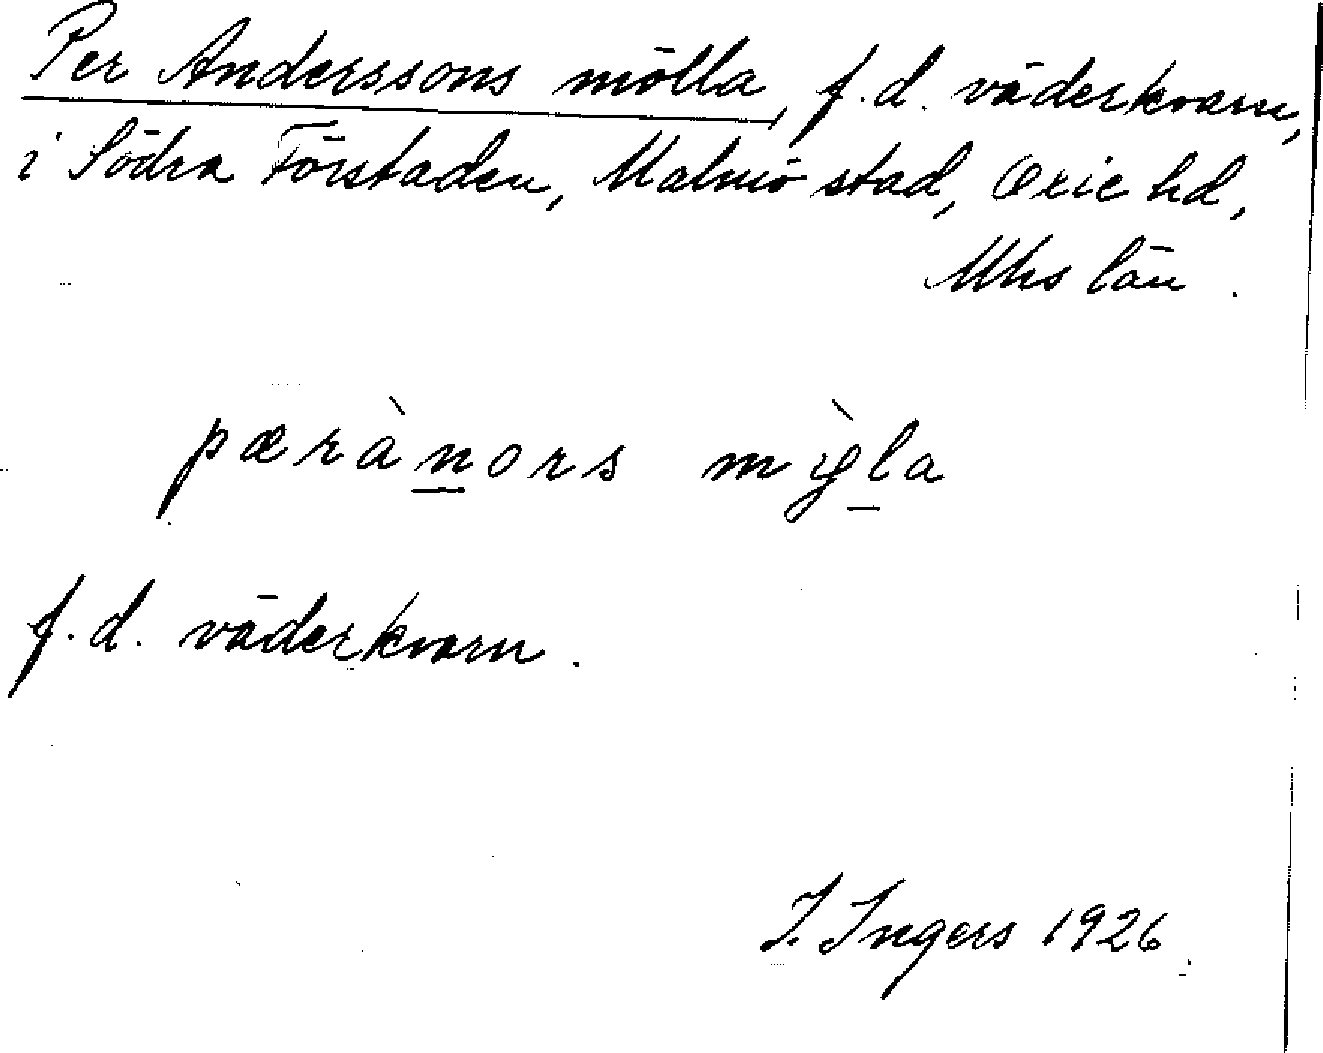 Per Anderssons mölla, f.d. väderkvarn,
i Södra Förstaden, Malmö stad, Oxie hd,
Mhs län.
pæràn̲ors mỳl̲a
f.d. väderkvarn.
I. Ingers 1926.